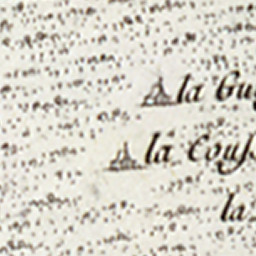 la Gu
la Couſ
la